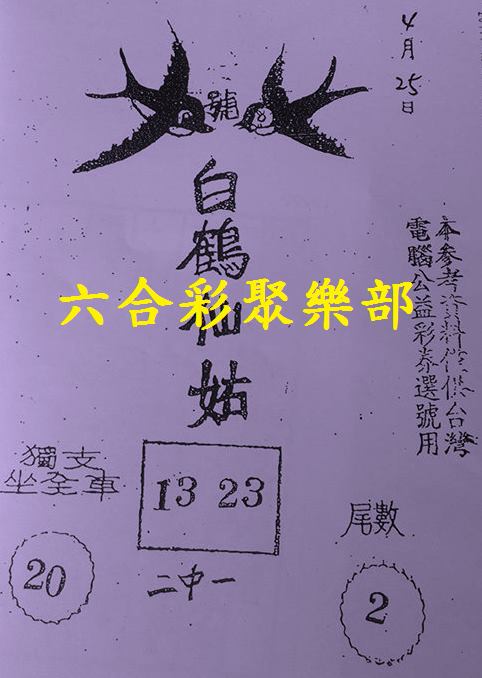 4月25日
號
白鶴仙姑
六合彩聚樂部
本參考資料僅供台灣
電腦公益彩券選號用
獨支
坐全車
13 23
尾數
20
二中一
2